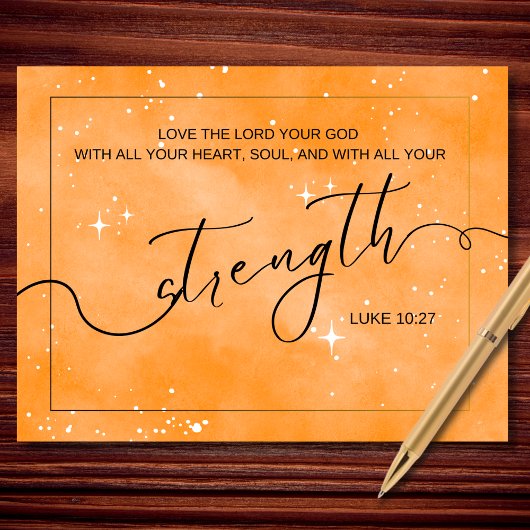 LOVE THE LORD YOUR GOD
WITH ALL YOUR HEART, SOUL, AND WITH ALL YOUR
strength
LUKE 10:27